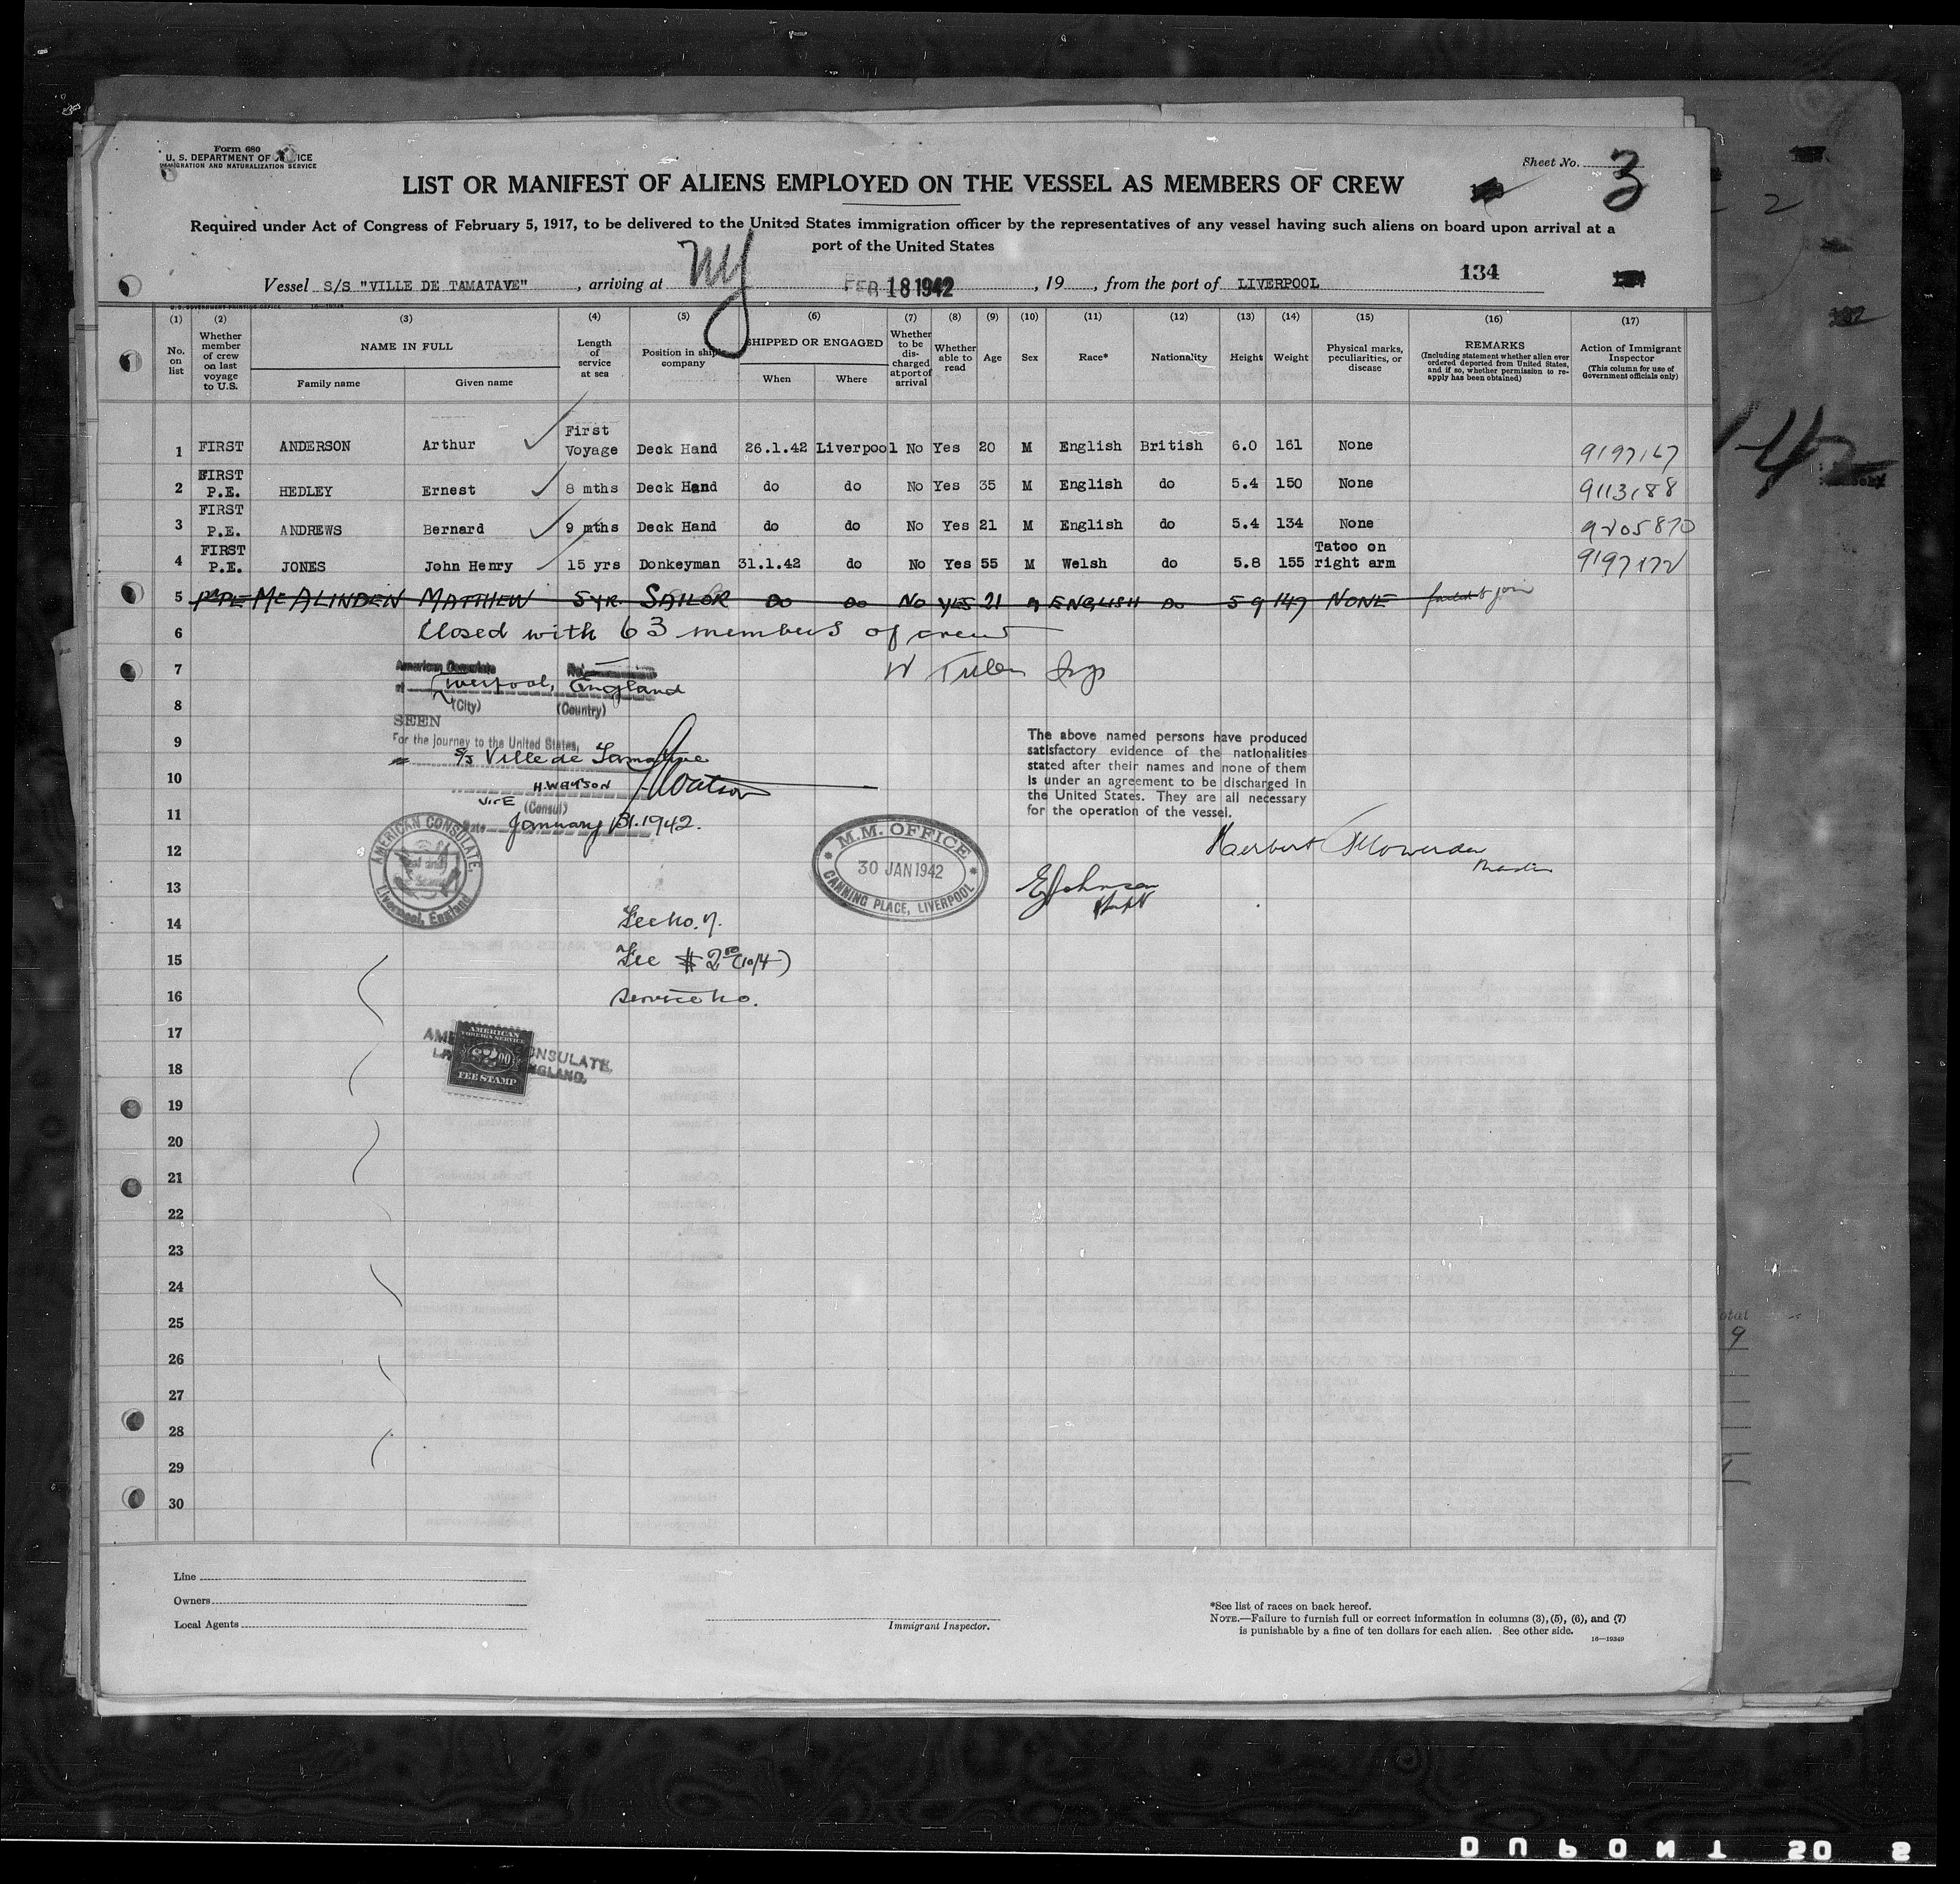 Form 680
U. S. DEPARTMENT OF JUSTICE
IMMIGRATION AND NATURALIZATION SERVICE
Sheet No. 3
LIST OR MANIFEST OF ALIENS EMPLOYED ON THE VESSEL AS MEMBERS OF CREW
Required under Act of Congress of February 5, 1917, to be delivered to the United States immigration officer by the representatives of any vessel having such aliens on board upon arrival at a
port of the United States
134
Vessel S/S "VILLE DE TAMATAVE" , arriving at NY FEB 18 1942 , 19 , from the port of LIVERPOOL
U. S. GOVERNMENT PRINTING OFFICE 16—19349
(1) (2) (3) (4) (5) (6) (7) (8) (9) (10) (11) (12) (13) (14) (15) (16) (17)
No. on list
Whether member of crew on last voyage to U.S.
NAME IN FULL
Family name
Given name
Length of service at sea
Position in ship's company
SHIPPED OR ENGAGED
When
Where
Whether to be discharged at port of arrival
Whether able to read
Age
Sex
Race*
Nationality
Height
Weight
Physical marks, peculiarities, or disease
REMARKS
(Including statement whether alien ever ordered deported from United States, and if so, whether permission to reapply has been obtained)
Action of Immigrant Inspector
(This column for use of Government officials only)
1 FIRST ANDERSON Arthur First Voyage Deck Hand 26.1.42 Liverpool No Yes 20 M English British 6.0 161 None 9197167
2 FIRST P.E. HEDLEY Ernest 8 mths Deck Hand do do No Yes 35 M English do 5.4 150 None 9113188
3 FIRST P.E. ANDREWS Bernard 9 mths Deck Hand do do No Yes 21 M English do 5.4 134 None 9205870
4 FIRST P.E. JONES John Henry 15 yrs Donkeyman 31.1.42 do No Yes 55 M Welsh do 5.8 155 Tatoo on right arm 9197172
5 McALINDEN MATTHEW 5 YR. SAILOR DO DO NO YES 21 ENGLISH DO 5 9 147 NONE failed to join
6 Closed with 63 members of crew
7
American Consulate
at Liverpool, England
8
(City) (Country)
SEEN
9
For the journey to the United States,
S/S Ville de Tamatave
10
H. WATSON HWatson
VICE (Consul)
11
Date January 31. 1942.
The above named persons have produced
satisfactory evidence of the nationalities
stated after their names and none of them
is under an agreement to be discharged in
the United States. They are all necessary
for the operation of the vessel.
12
AMERICAN CONSULATE,
Liverpool, England
M.M. OFFICE
30 JAN 1942
CANNING PLACE, LIVERPOOL
Herbert
Master
13
EJohnson
14
15
Fee $ 2.00 (10/4)
16
Service No.
17
AMERICAN CONSULATE,
AMERICAN
FOREIGN SERVICE
$2.00
FEE STAMP
ENGLAND.
18
19
20
21
22
23
24
25
26
27
28
29
30
Line
Owners
Local Agents
Immigrant Inspector.
*See list of races on back hereof.
NOTE.—Failure to furnish full or correct information in columns (3), (5), (6), and (7)
is punishable by a fine of ten dollars for each alien. See other side.
16—19349
DUPONT 50 S